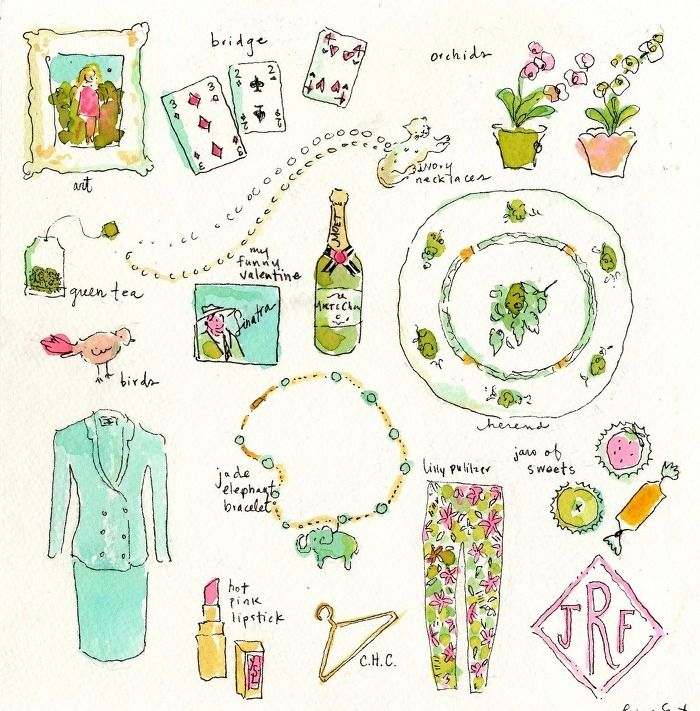 bridge
orchids
3
3
2
2
art
ivory
necklaces
green tea
my
funny
valentine
MOET
Sinatra
birds
herend
jade
elephant
bracelet
lilly pulitzer
jars of
sweets
hot
pink
lipstick
C.H.C.
YSL
JRF